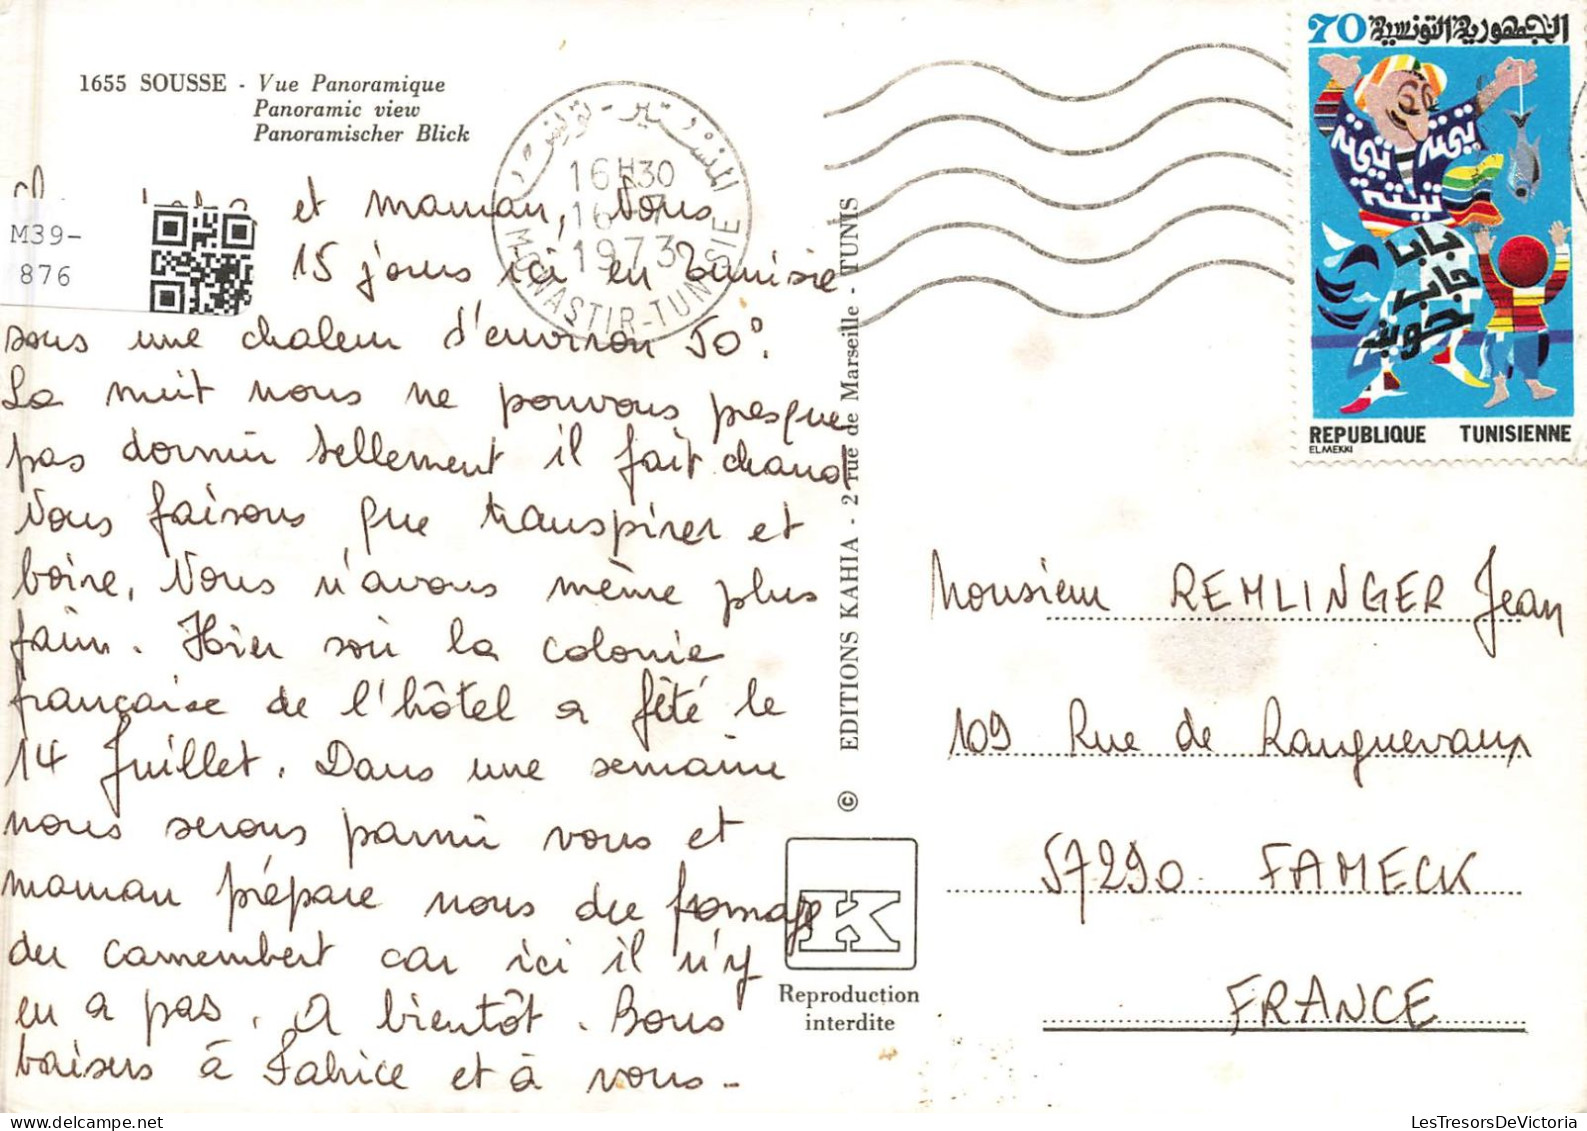 1655 SOUSSE - Vue Panoramique
Panoramic view
Panoramischer Blick
et maman, Nous
15 jours ici en Tunisie
sous une chaleur d'environ 50°.
La nuit nous ne pouvons presque
pas dormir tellement il fait chaud
Nous faisons que transpirer et
boire. Nous n'avons même plus
faim. Hier soir la colonie
française de l'hôtel a fêté le
14 Juillet. Dans une semaine
nous serons parmi vous et
maman prépare nous du fromage
du camembert car ici il n'y
en a pas. A bientôt. Bons
baisers à Fabrice et à vous -
M39-
876
المنستير - تونس
16H30
16
1973
MONASTIR-TUNISIE
© EDITIONS KAHIA - 2 rue de Marseille - TUNIS
K
Reproduction
interdite
70 الجمهورية التونسية
يحية يحية
بابا
جاب
حوت
REPUBLIQUE TUNISIENNE
ELMEKKI
Monsieur REMLINGER Jean
109 Rue de Ranguevaux
57290 FAMECK
FRANCE
LesTresorsDeVictoria.com